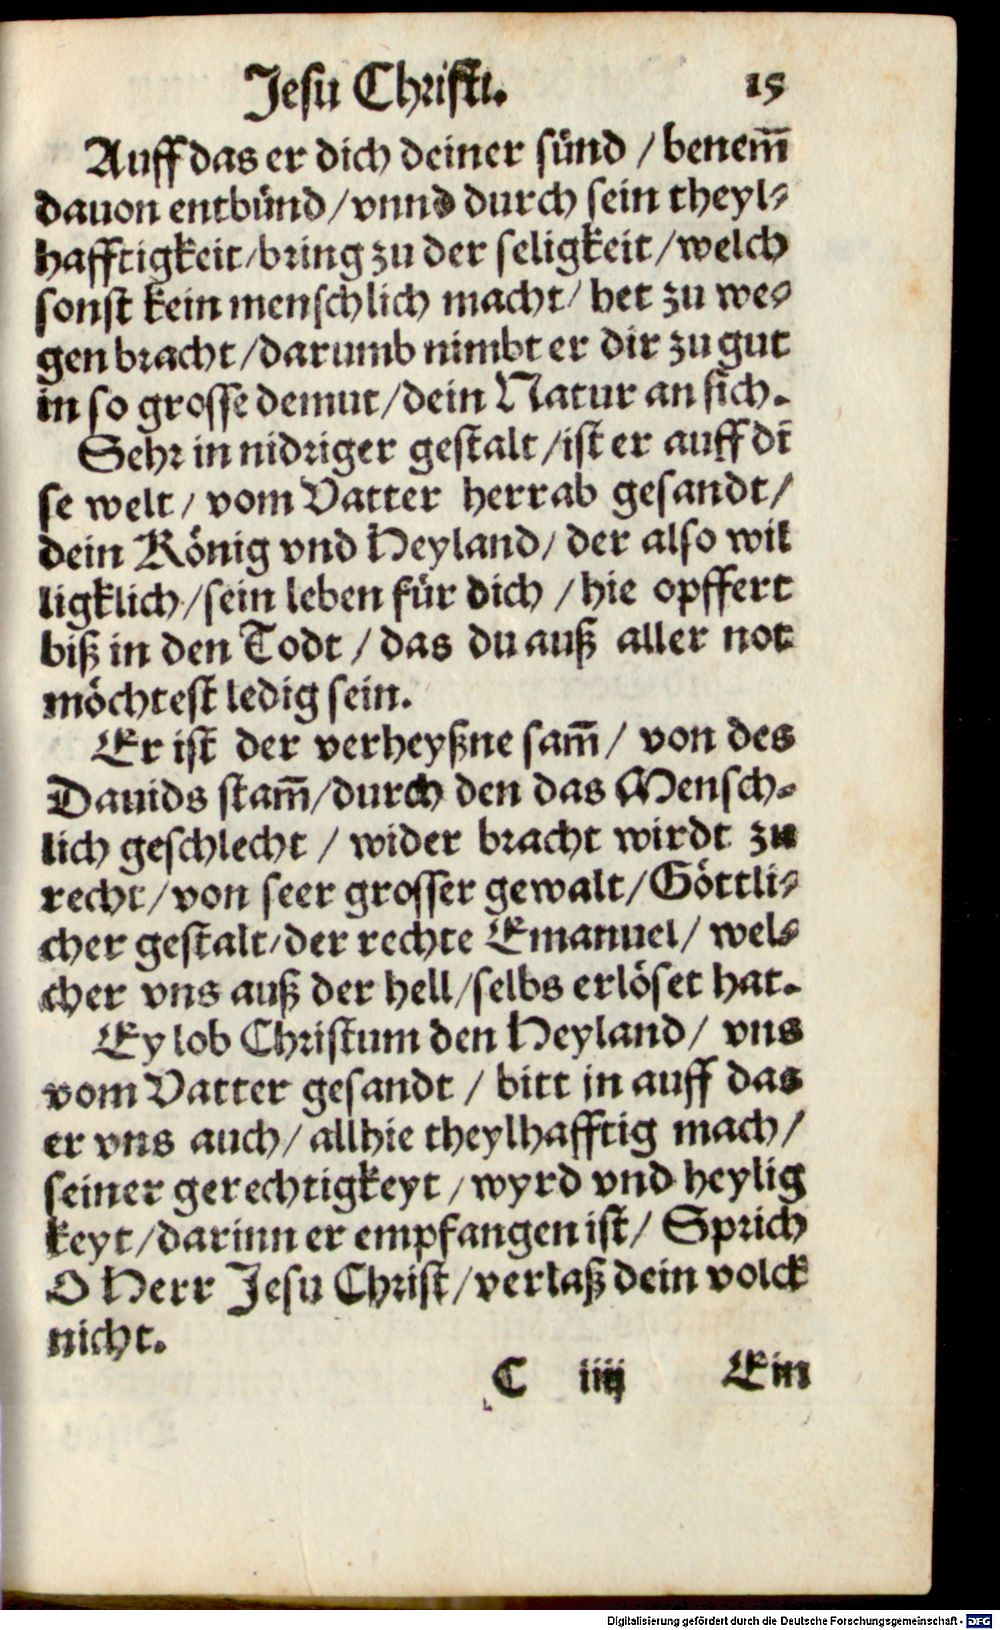 Jesu Christi. 15
Auff das er dich deiner sünd / benem̄
dauon entbünd / vnnd durch sein theyl⸗
hafftigkeit / bring zu der seligkeit / welch
sonst kein menschlich macht / het zu we⸗
gen bracht / darumb nimbt er dir zu gut
in so grosse demut / dein Natur an sich.
Sehr in nidriger gestalt / ist er auff dī
se welt / vom Vatter herrab gesandt /
dein König vnd Heyland / der also wil
ligklich / sein leben für dich / hie opffert
biß in den Todt / das du auß aller not
möchtest ledig sein.
Er ist der verheyßne sam̄ / von des
Dauids stam̄ / durch den das Mensch⸗
lich geschlecht / wider bracht wirdt zu
recht / von seer grosser gewalt / Göttli⸗
cher gestalt / der rechte Emanuel / wel⸗
cher vns auß der hell / selbs erlöset hat.
Ey lob Christum den Heyland / vns
vom Vatter gesandt / bitt in auff das
er vns auch / allhie theylhafftig mach /
seiner gerechtigkeyt / wyrd vnd heylig
keyt / darinn er empfangen ist / Sprich
O Herr Jesu Christ / verlaß dein volck
nicht.
C iiij Ein
Digitalisierung gefördert durch die Deutsche Forschungsgemeinschaft - DFG